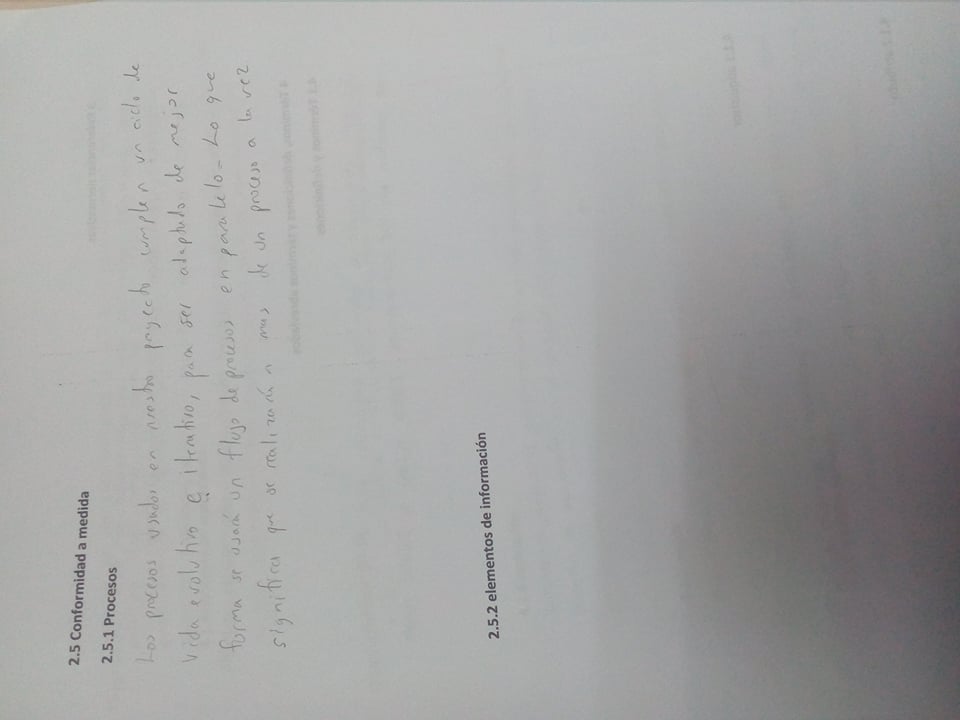 2.5 Conformidad a medida
2.5.1 Procesos
Los procesos usados en nuestro proyecto cumplen un ciclo de
vida evolutivo e iterativo, para ser adaptado de mejor
forma se usará un flujo de procesos en paralelo = Lo que
significa que se realizarán mas de un proceso a la vez
2.5.2 elementos de información